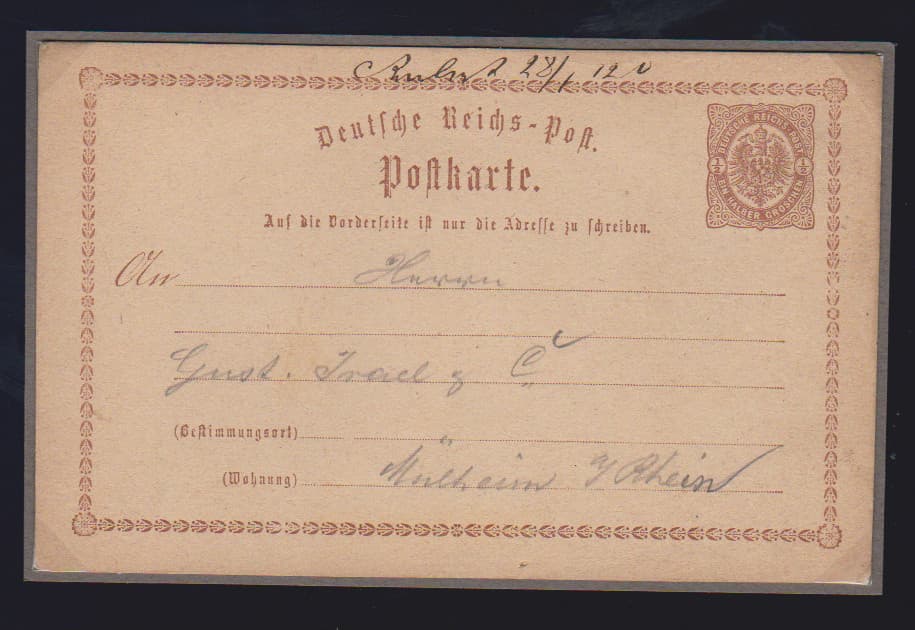 28/1 12
Deutsche Reichs-Post.
DEUTSCHE REICHS POST
½ ½
EIN HALBER GROSCHEN
Postkarte.
Auf die Vorderseite ist nur die Adresse zu schreiben.
An Herrn
Gust. Israel & C
(Bestimmungsort)
(Wohnung) Mülheim Rhein